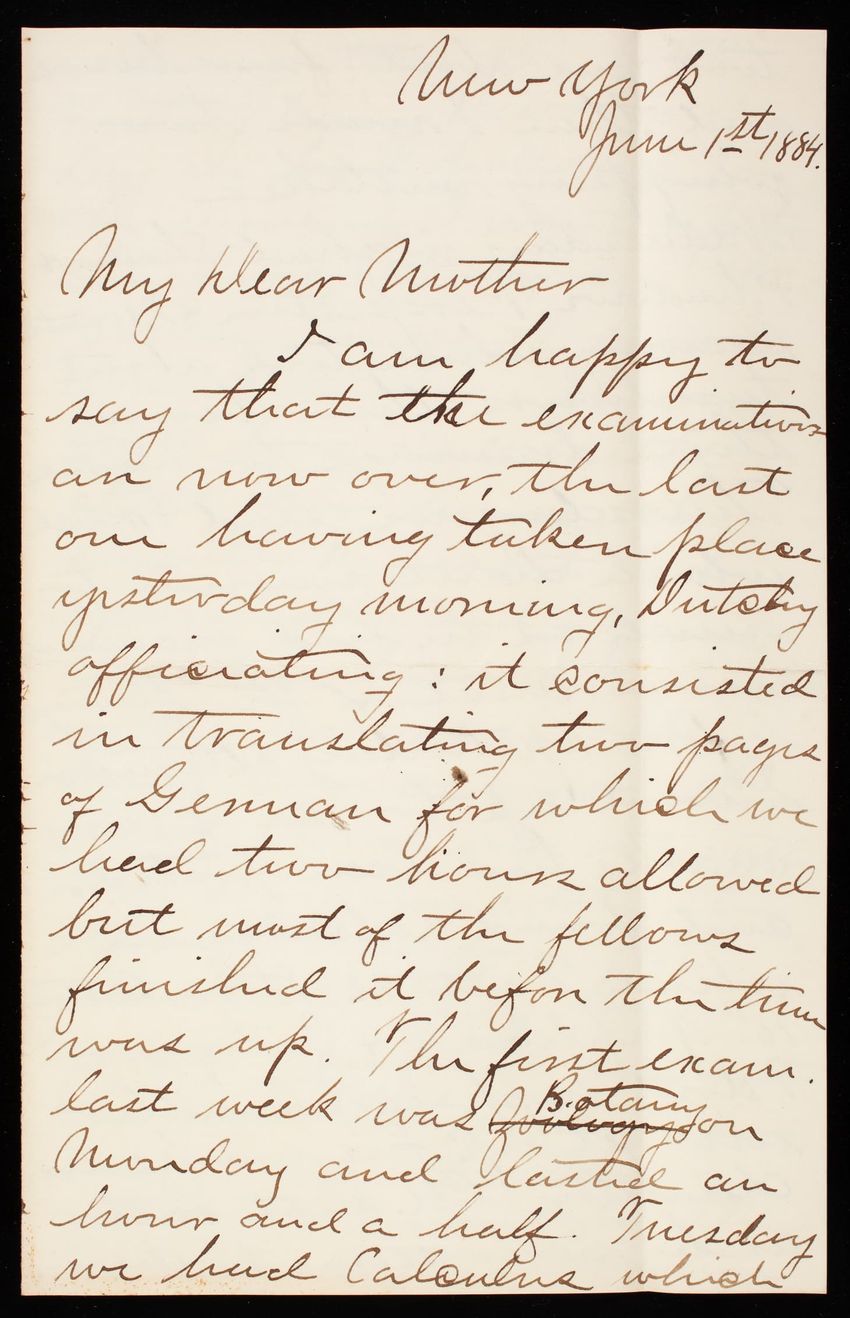 New York
June 1st 1884.
My Dear Mother
I am happy to
say that the examinations
are now over, the last
one having taken place
yesterday morning, Dutchy
officiating: it consisted
in translating two pages
of German for which we
had two hours allowed
but most of the fellows
finished it before the time
was up. The first exam.
last week was Botany
Zoology on
Monday and lasted an
hour and a half. Tuesday
we had Calculus which